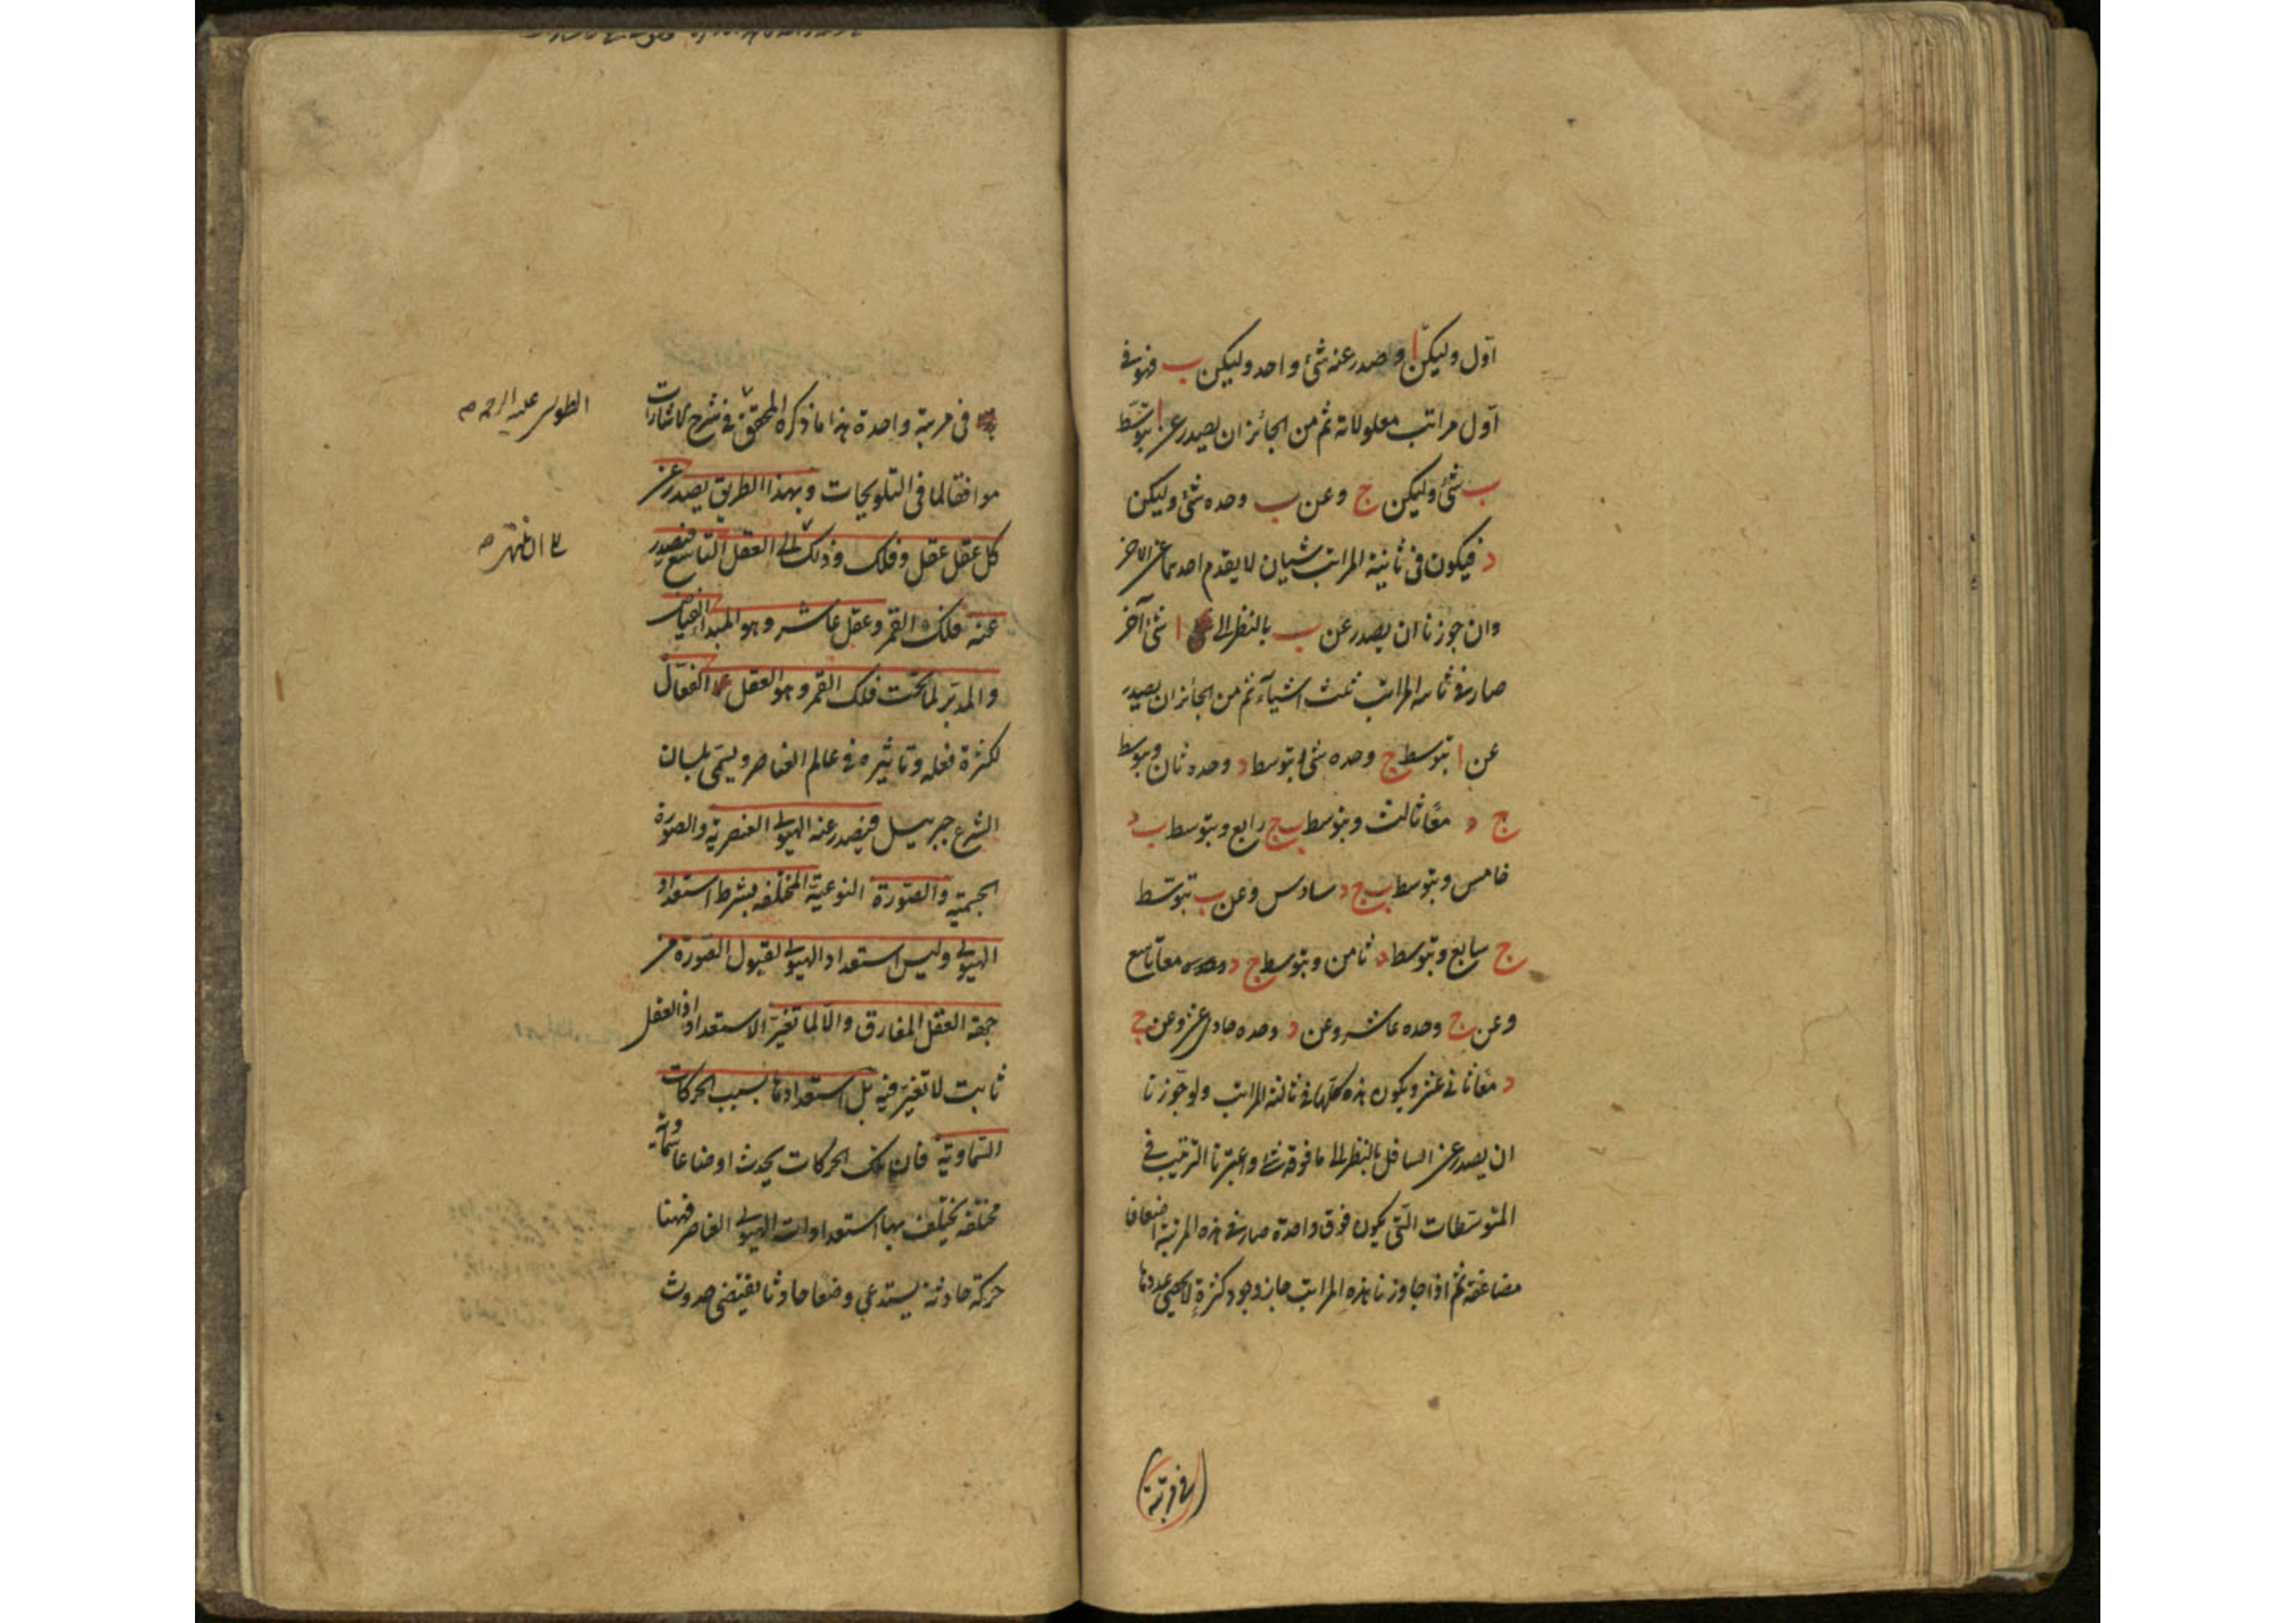 اوّل وليكن ا وصدر عنه شئ واحد وليكن ب فهو فى
اوّل مراتب معلولاته ثم من الجائز ان يصدر عن ا بتوسّط
ب شئ وليكن ج وعن ب وحده شئ وليكن
د فيكون فى ثانية المراتب شيان لا يقدم احدهما عن الاخر
وان جوزنا ان يصدر عن ب بالنظر الى ا شئ آخر
صار فى ثانيه المراتب ثلث اشياء ثم من الجائز ان يصدر
عن ا بتوسط ج وحده شئ وبتوسط د وحده ثان وبتوسط
ج د معًا ثالث وبتوسط ب ج رابع وبتوسط ب د
خامس وبتوسط ب ج د سادس وعن ب بتوسّط
ج سابع وبتوسط د ثامن وبتوسط ج د معًا تاسع
وعن ج وحده عاشر وعن د وحده حادى عشر وعن ج
د معًا ثانى عشر ويكون هذه كلّها فى ثالثة المراتب ولو جوّزنا
ان يصدر عن السافل بالنظر الى ما فوقه شئ واعتبرنا الترتيب فى
المتوسّطات الّتى يكون فوق واحدة صار فى هذه المرتبة اضعافا
مضاعفة ثم اذا جاوزنا هذه المراتب جاز وجود كثرة لا يحصى عددها
فى مرتبة
فى مرتبة واحدة هذا ما ذكره المحقق فى شرح الاشارات
الطوسى عليه الرحمة
موافقا لما فى التلويحات وبهذا الطريق يصدر عن
كل عقل عقل وفلك وذلك الى العقل التاسع فيصدر
عنه فلك القمر وعقل عاشر وهو المبدأ الفياض
والمدبّر لما تحت فلك القمر وهو العقل الفعّال
لكثرة فعله وتاثيره فى عالم العناصر ويسمّى بلسان
الشرع جبرئيل فيصدر عنه الهيولى العنصرية والصورة
الجسمية والصّورة النوعية المختلفه بشرط استعداد
الهيولى وليس استعداد الهيولى لقبول الصّورة من
جهة العقل المفارق والّا لما تغيّر الاستعداد اذ العقل
ثابت لا تغيّر فيه بل استعدادها بسبب الحركات
السّماوية فان تلك الحركات يحدث اوضاعا سماوية
مختلفه يختلف بها استعدادات الهيولى العناصر فههنا
حركة حادثة يستدعى وضعا حادثا يقتضى حدوث